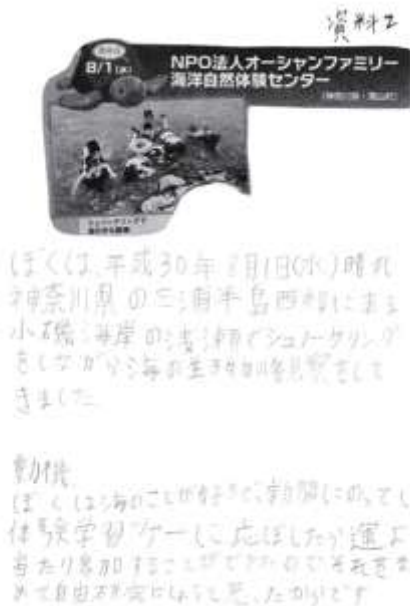 資料2
8/1(水)
NPO法人オーシャンファミリー
海洋自然体験センター
ぼくは、平成30年8月1日(水)晴れ
神奈川県の三浦半島西部にある
小磯海岸の浅瀬でシュノーケリング
をしながら海の生き物観察をして
きました
動機
ぼくは海のことが好きで、新聞にのってい
体験学習ツアーに応ぼしたら運よ
当たり参加することができたのでそれをま
めて自由研究にしようと思ったからです